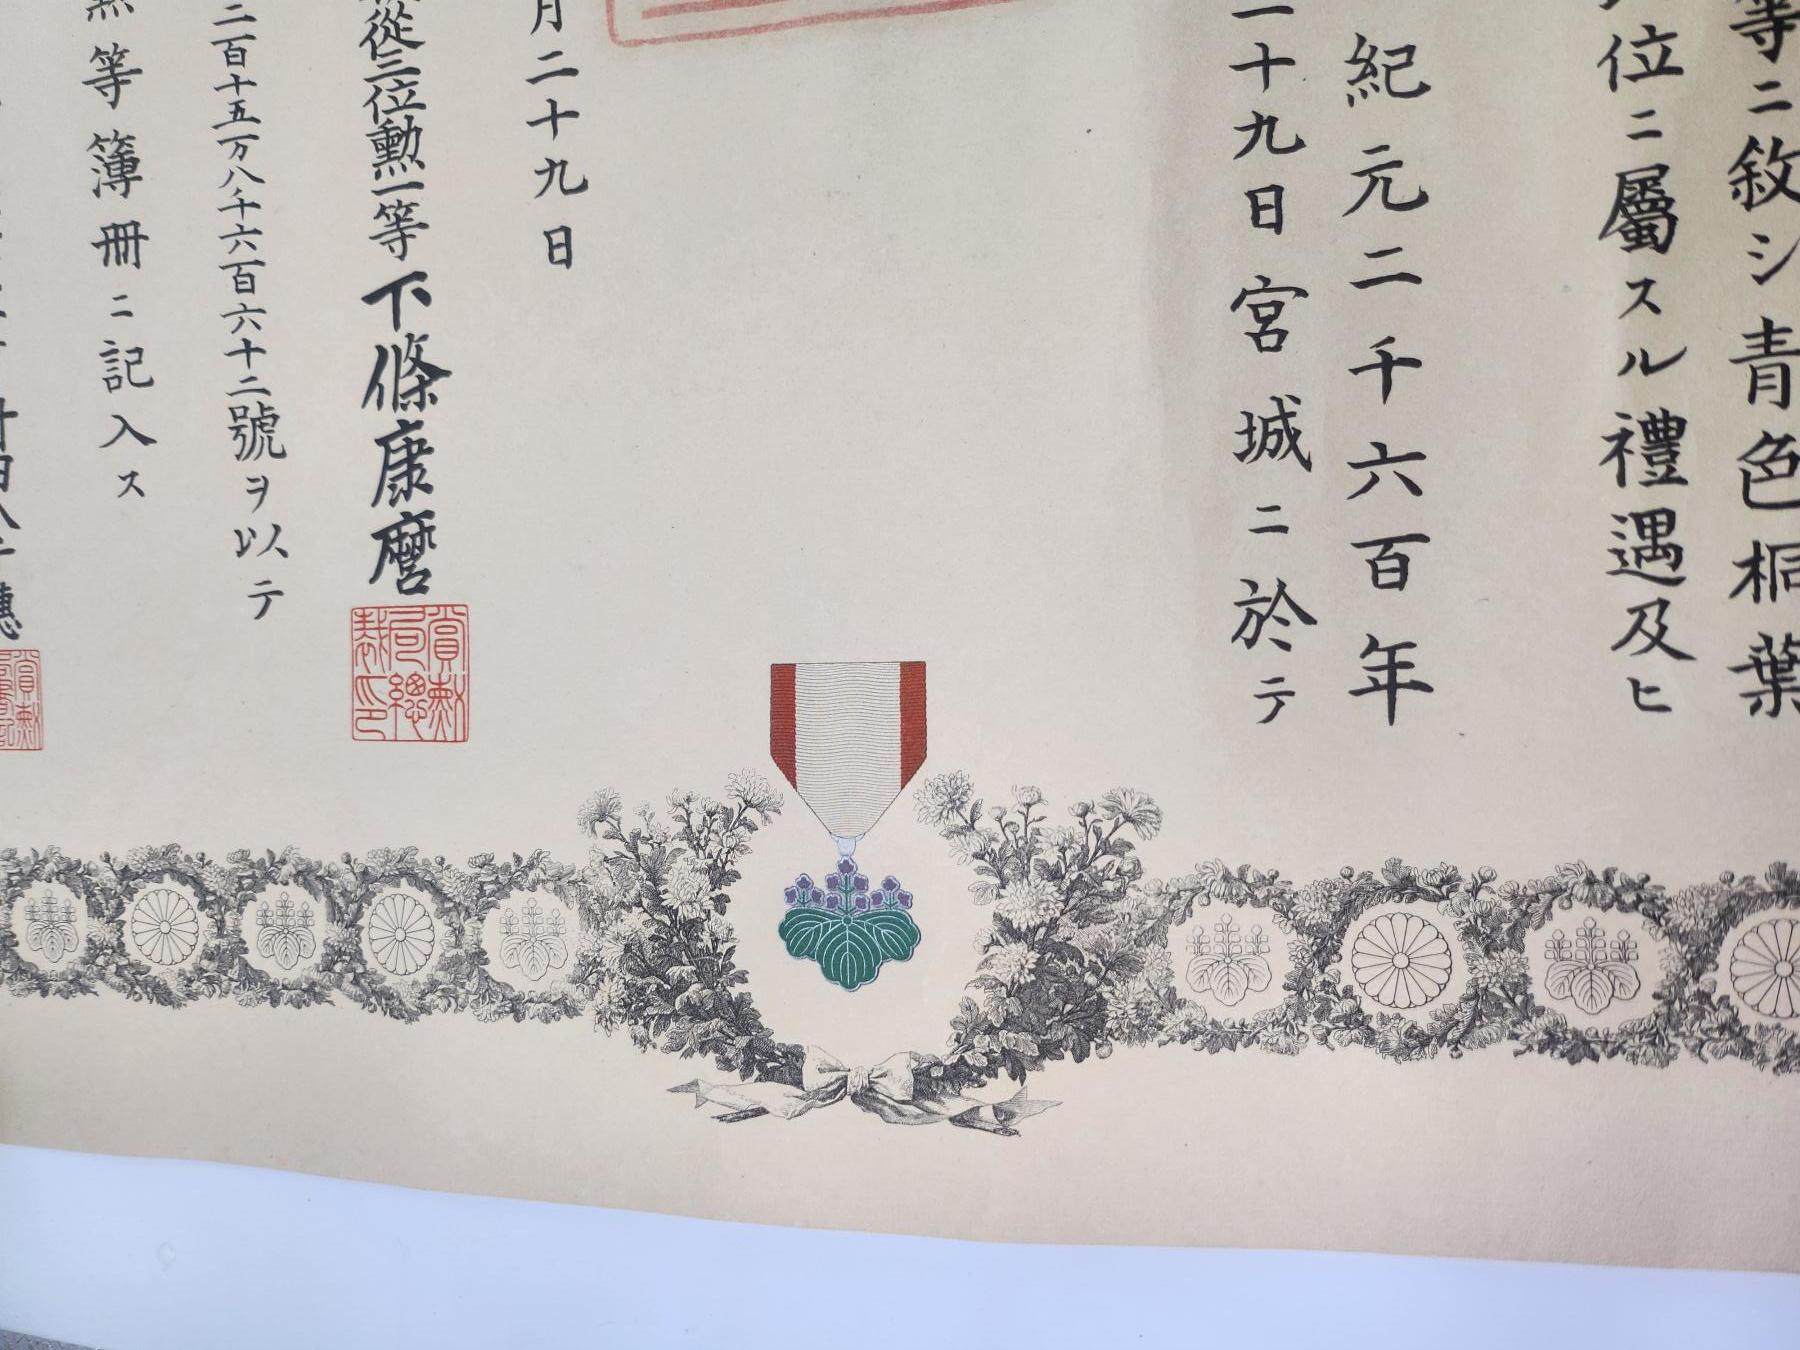 等ニ敘シ青色桐葉
位ニ屬スル禮遇及ヒ
紀元二千六百年
十九日宮城ニ於テ
月二十九日
從三位勲一等下條康麿
賞勲局總裁印
二百十五万八千六百六十二號ヲ以テ
等簿冊ニ記入ス